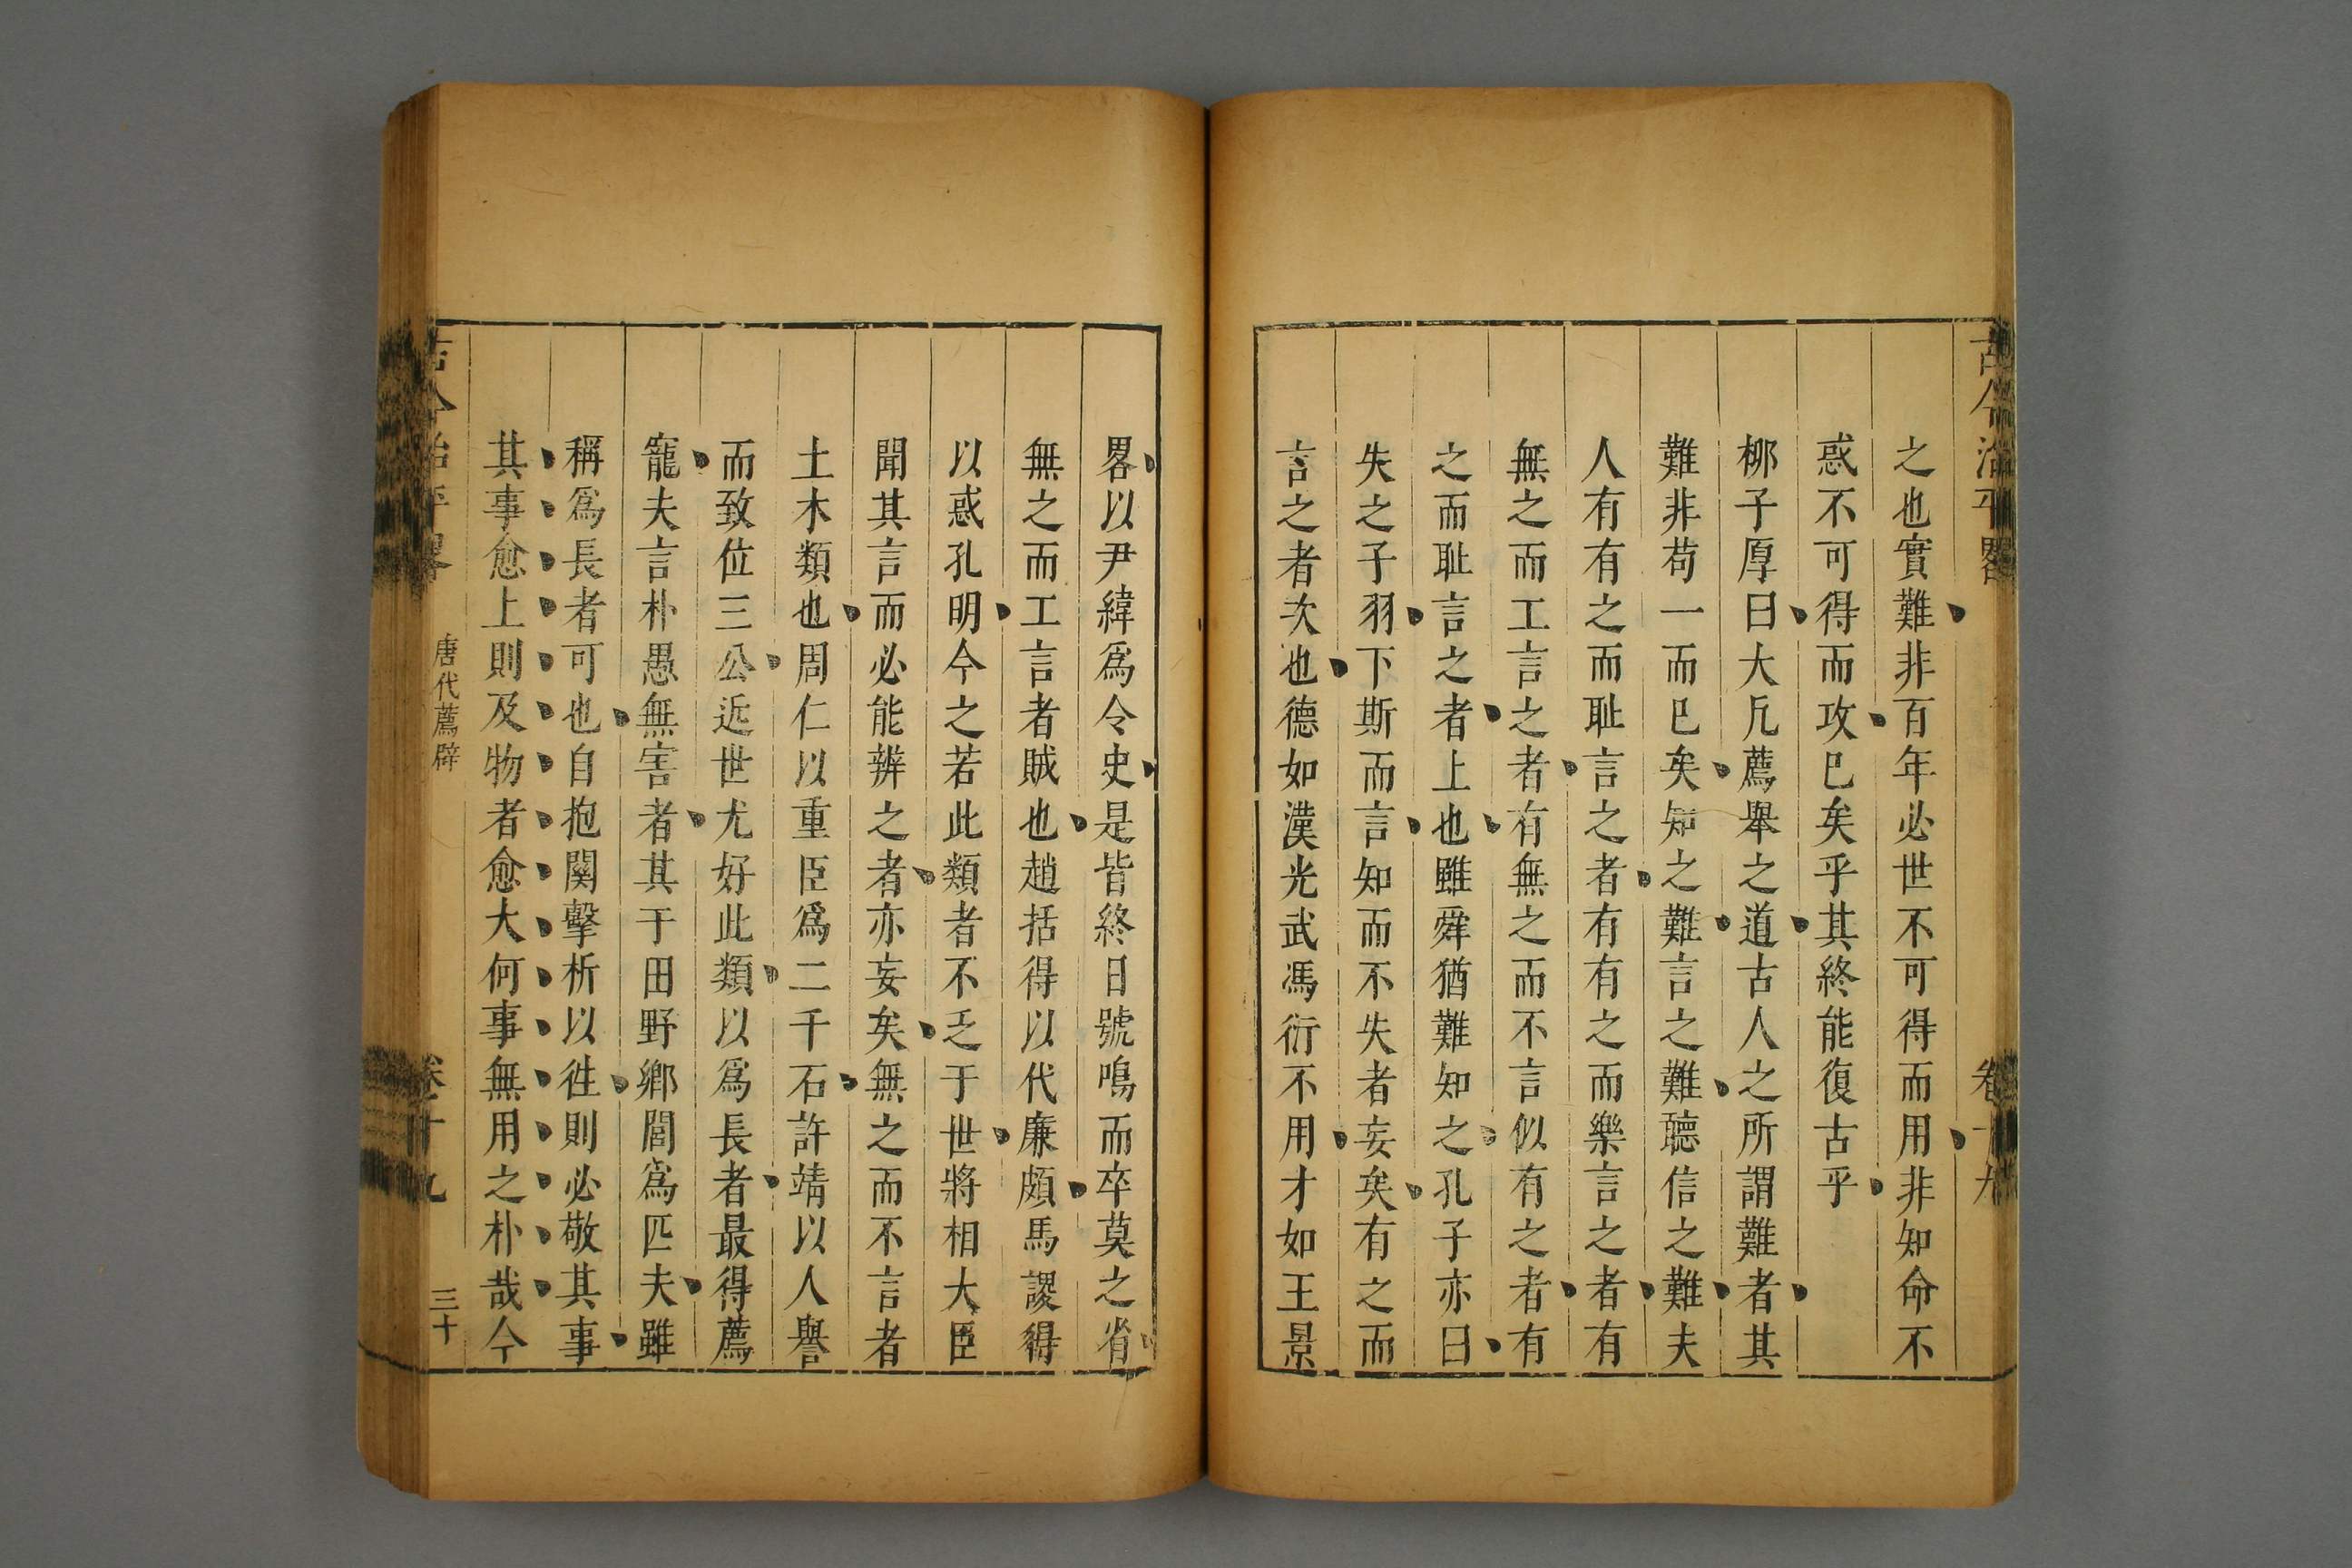 古今治平畧
卷十九
之也實難非百年必世不可得而用非知命不
惑不可得而攻巳矣乎其終能復古乎
柳子厚曰大凡薦舉之道古人之所謂難者其
難非苟一而巳矣知之難言之難聽信之難夫
人有有之而耻言之者有有之而樂言之者有
無之而工言之者有無之而不言似有之者有
之而耻言之者上也雖舜猶難知之孔子亦曰
失之子羽下斯而言知而不失者妄矣有之而
言之者次也德如漢光武馮衍不用才如王景
畧以尹緯爲令史是皆終日號鳴而卒莫之省
無之而工言者賊也趙括得以代廉頗馬謖得
以惑孔明今之若此類者不乏于世將相大臣
聞其言而必能辨之者亦妄矣無之而不言者
土木類也周仁以重臣爲二千石許靖以人譽
而致位三公近世尤好此類以爲長者最得薦
寵夫言朴愚無害者其于田野鄉閭爲匹夫雖
稱爲長者可也自抱關擊柝以徃則必敬其事
其事愈上則及物者愈大何事無用之朴哉今
古今治平畧
唐代薦辟
卷十九
三十